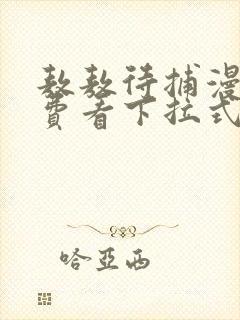 敖敖待捕漫
费看下拉式
哈亚西